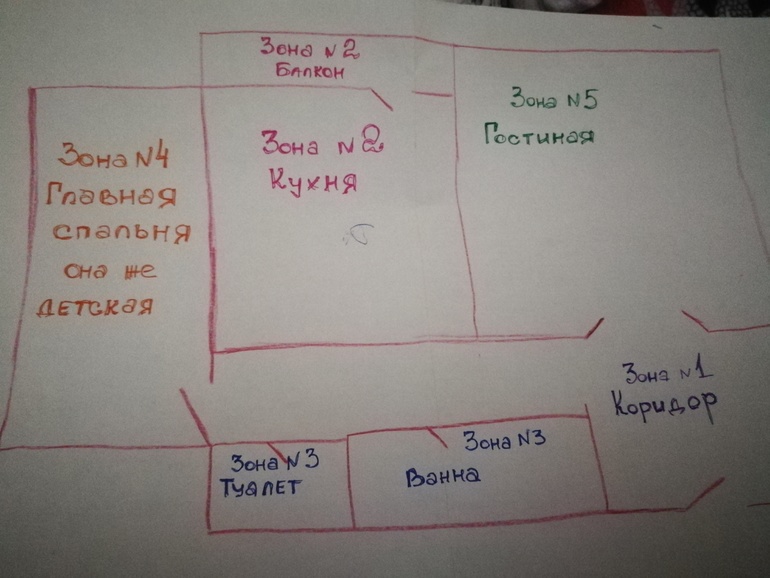 Зона №2
Балкон
Зона №5
Гостиная
Зона №2
Кухня
Зона №4
Главная
спальня
она же
детская
Зона №1
Коридор
Зона №3
Туалет
Зона №3
Ванна